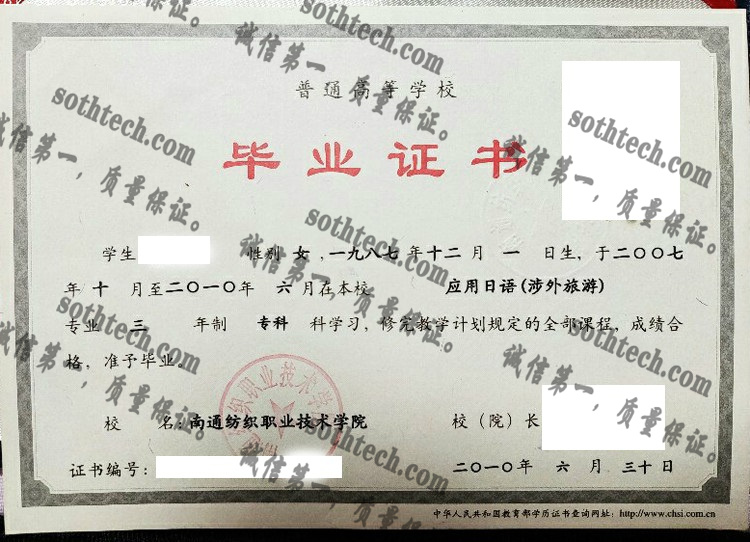 普通高等学校
毕业证书
学生 性别 女 ,一九八七 年 十二 月 一 日生，于二〇〇七
年 十 月至二〇一〇年 六 月在本校 应用日语(涉外旅游)
专业 三 年制 专科 科学习，修完教学计划规定的全部课程，成绩合
格，准予毕业。
校 名：南通纺织职业技术学院 校（院）长
证书编号： 二〇一〇年 六 月 三十 日
中华人民共和国教育部学历证书查询网址：http://www.chsi.com.cn
sothtech.com
诚信第一，质量保证。
sothtech.com
诚信第一，质量保证。
sothtech.com
诚信第一，质量保证。
sothtech.com
诚信第一，质量保证。
sothtech.com
诚信第一，质量保证。
sothtech.com
诚信第一，质量保证。
sothtech.com
诚信第一，质量保证。